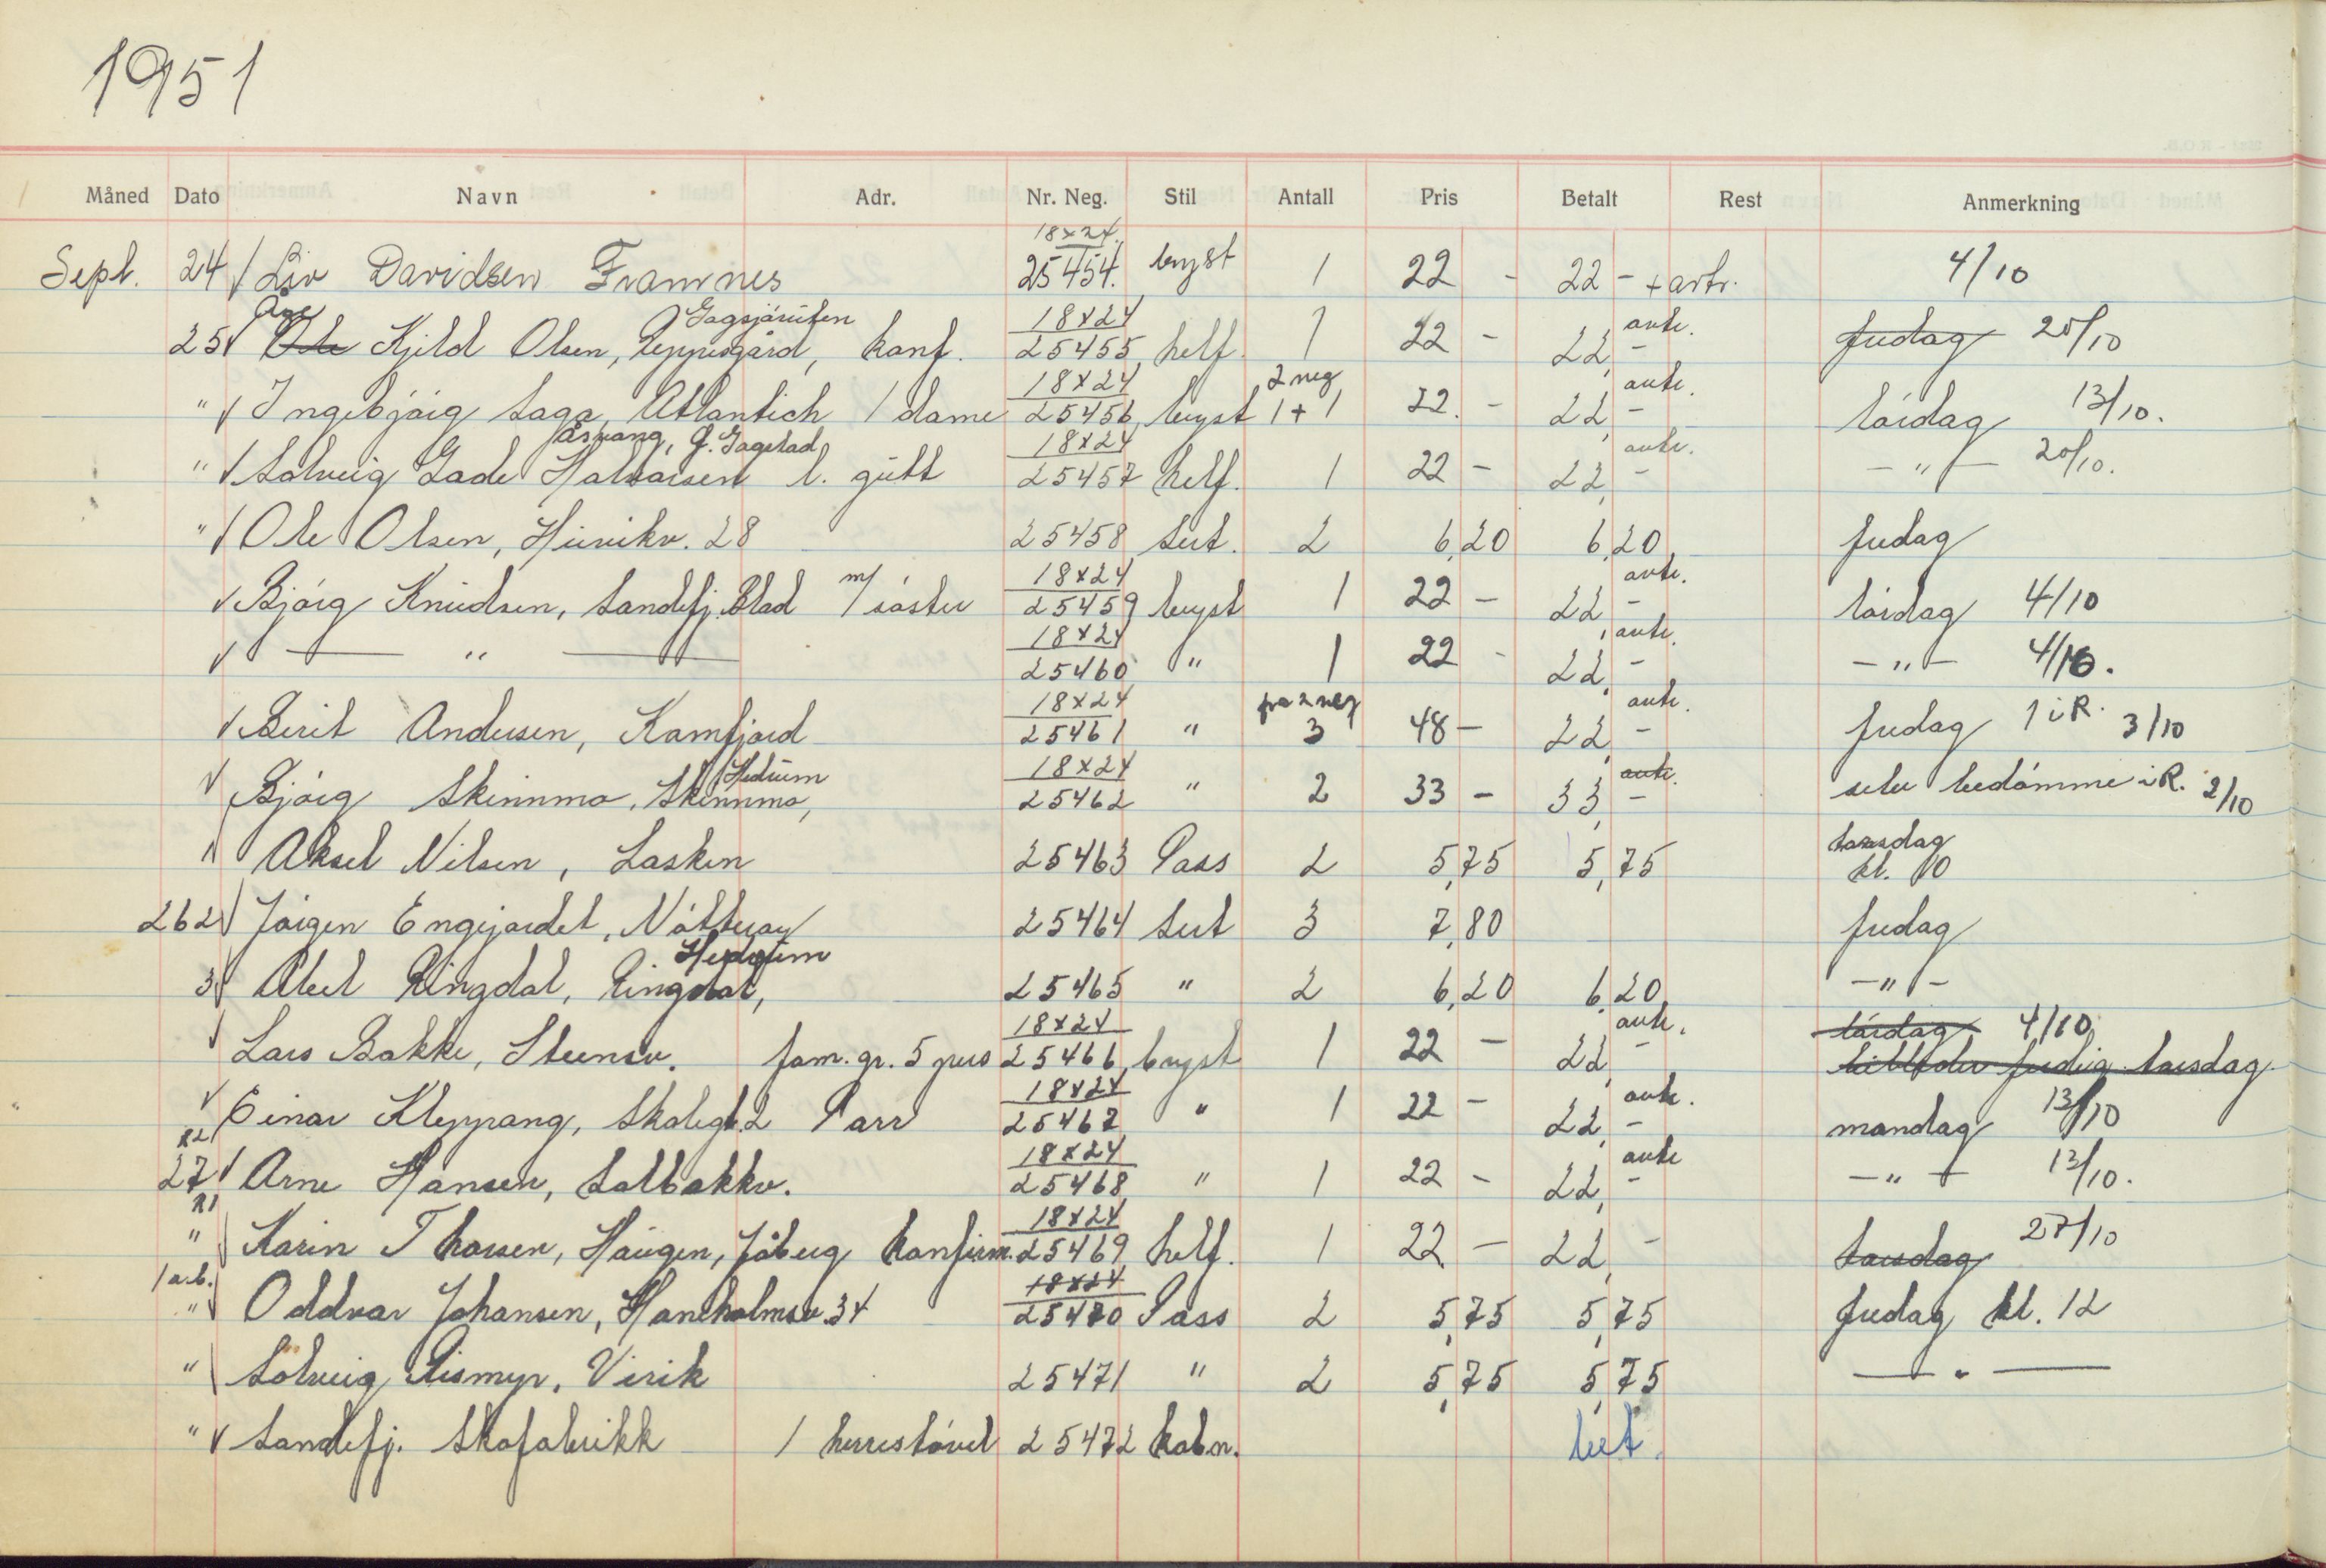 1951
Måned Dato Navn Adr. Nr. Neg. Stil Antall Pris Betalt Rest Anmerkning
18x24
Sept. 24 Liv Davidsen Framnes 25454. bryst 1 22 - 22 - + avtr. 4/10
Åge Gagsjøruten 18x24 avtr.
25 Ole Kjeld Olsen, konf. 25455 helf. 1 22 - 22,- fredag 20/10
18x24 2 neg avtr.
" Ingebjørg Saga, Atlantich 1 dame 25456 bryst 1+1 22.- 22,- lørdag 13/10.
Åsvang, g. Gagstad 18x24 avtr.
" Solveig Gade Halvorsen l. gutt 25457 helf. 1 22 - 22,- - " - 20/10.
" Ole Olsen, Hinrikv. 28 25458 Sert. 2 6,20 6,20 fredag
m/ 18x24 avtr.
Bjørg Knudsen, Sandefj. Blad 1 søster 25459 bryst 1 22 - 22,- lørdag 4/10
18x24 avtr.
— " — 25460 " 1 22 - 22,- - " - 4/10.
18x24 fra 2 neg avtr.
Berit Andersen, Kamfjord 25461 " 3 48 - 22,- fredag 1 i R. 3/10
Hedrum 18x24 avtr.
Bjørg Skinnmo, Skinnmo, 25462 " 2 33 - 33,- selv bedømme i R. 2/10
Aksel Nilsen, Lasken 25463 Pass 2 5,75 5,75 torsdag
kl. 10
26 2 Jørgen Engejordet, Nøtterøy 25464 Sert 3 7,80 fredag
Hedrum
3 Ringdal, Ringdal, 25465 " 2 6,20 6,20 - " -
18x24 avtr. lørdag 4/10
Lars Bakke, Steensv. fam. gr. 5 pers 25466 bryst 1 22 - 22,- ferdig torsdag
18x24 avtr.
Einar Kleppang, Skolegt. 2 Parr 25467 " 1 22 - 22,- mandag 13/10
R2 18x24 avtr.
27 Arne Hansen, Solbakkv. 25468 " 1 22 - 22,- - " - 13/10.
R1 18x24
" Karin Thorsen, Haugen, Jåberg konfirm. 25469 helf. 1 22 - 22,- torsdag 27/10
1 a.b. 18x24
" Oddvar Johansen, Haneholmsv. 34 25470 Pass 2 5,75 5,75 fredag kl. 12
" Solveig Rismyr, Virik 25471 " 2 5,75 5,75 — " —
" Sandefj. Skofabrikk 1 herrestøvel 25472 kabn. bet.